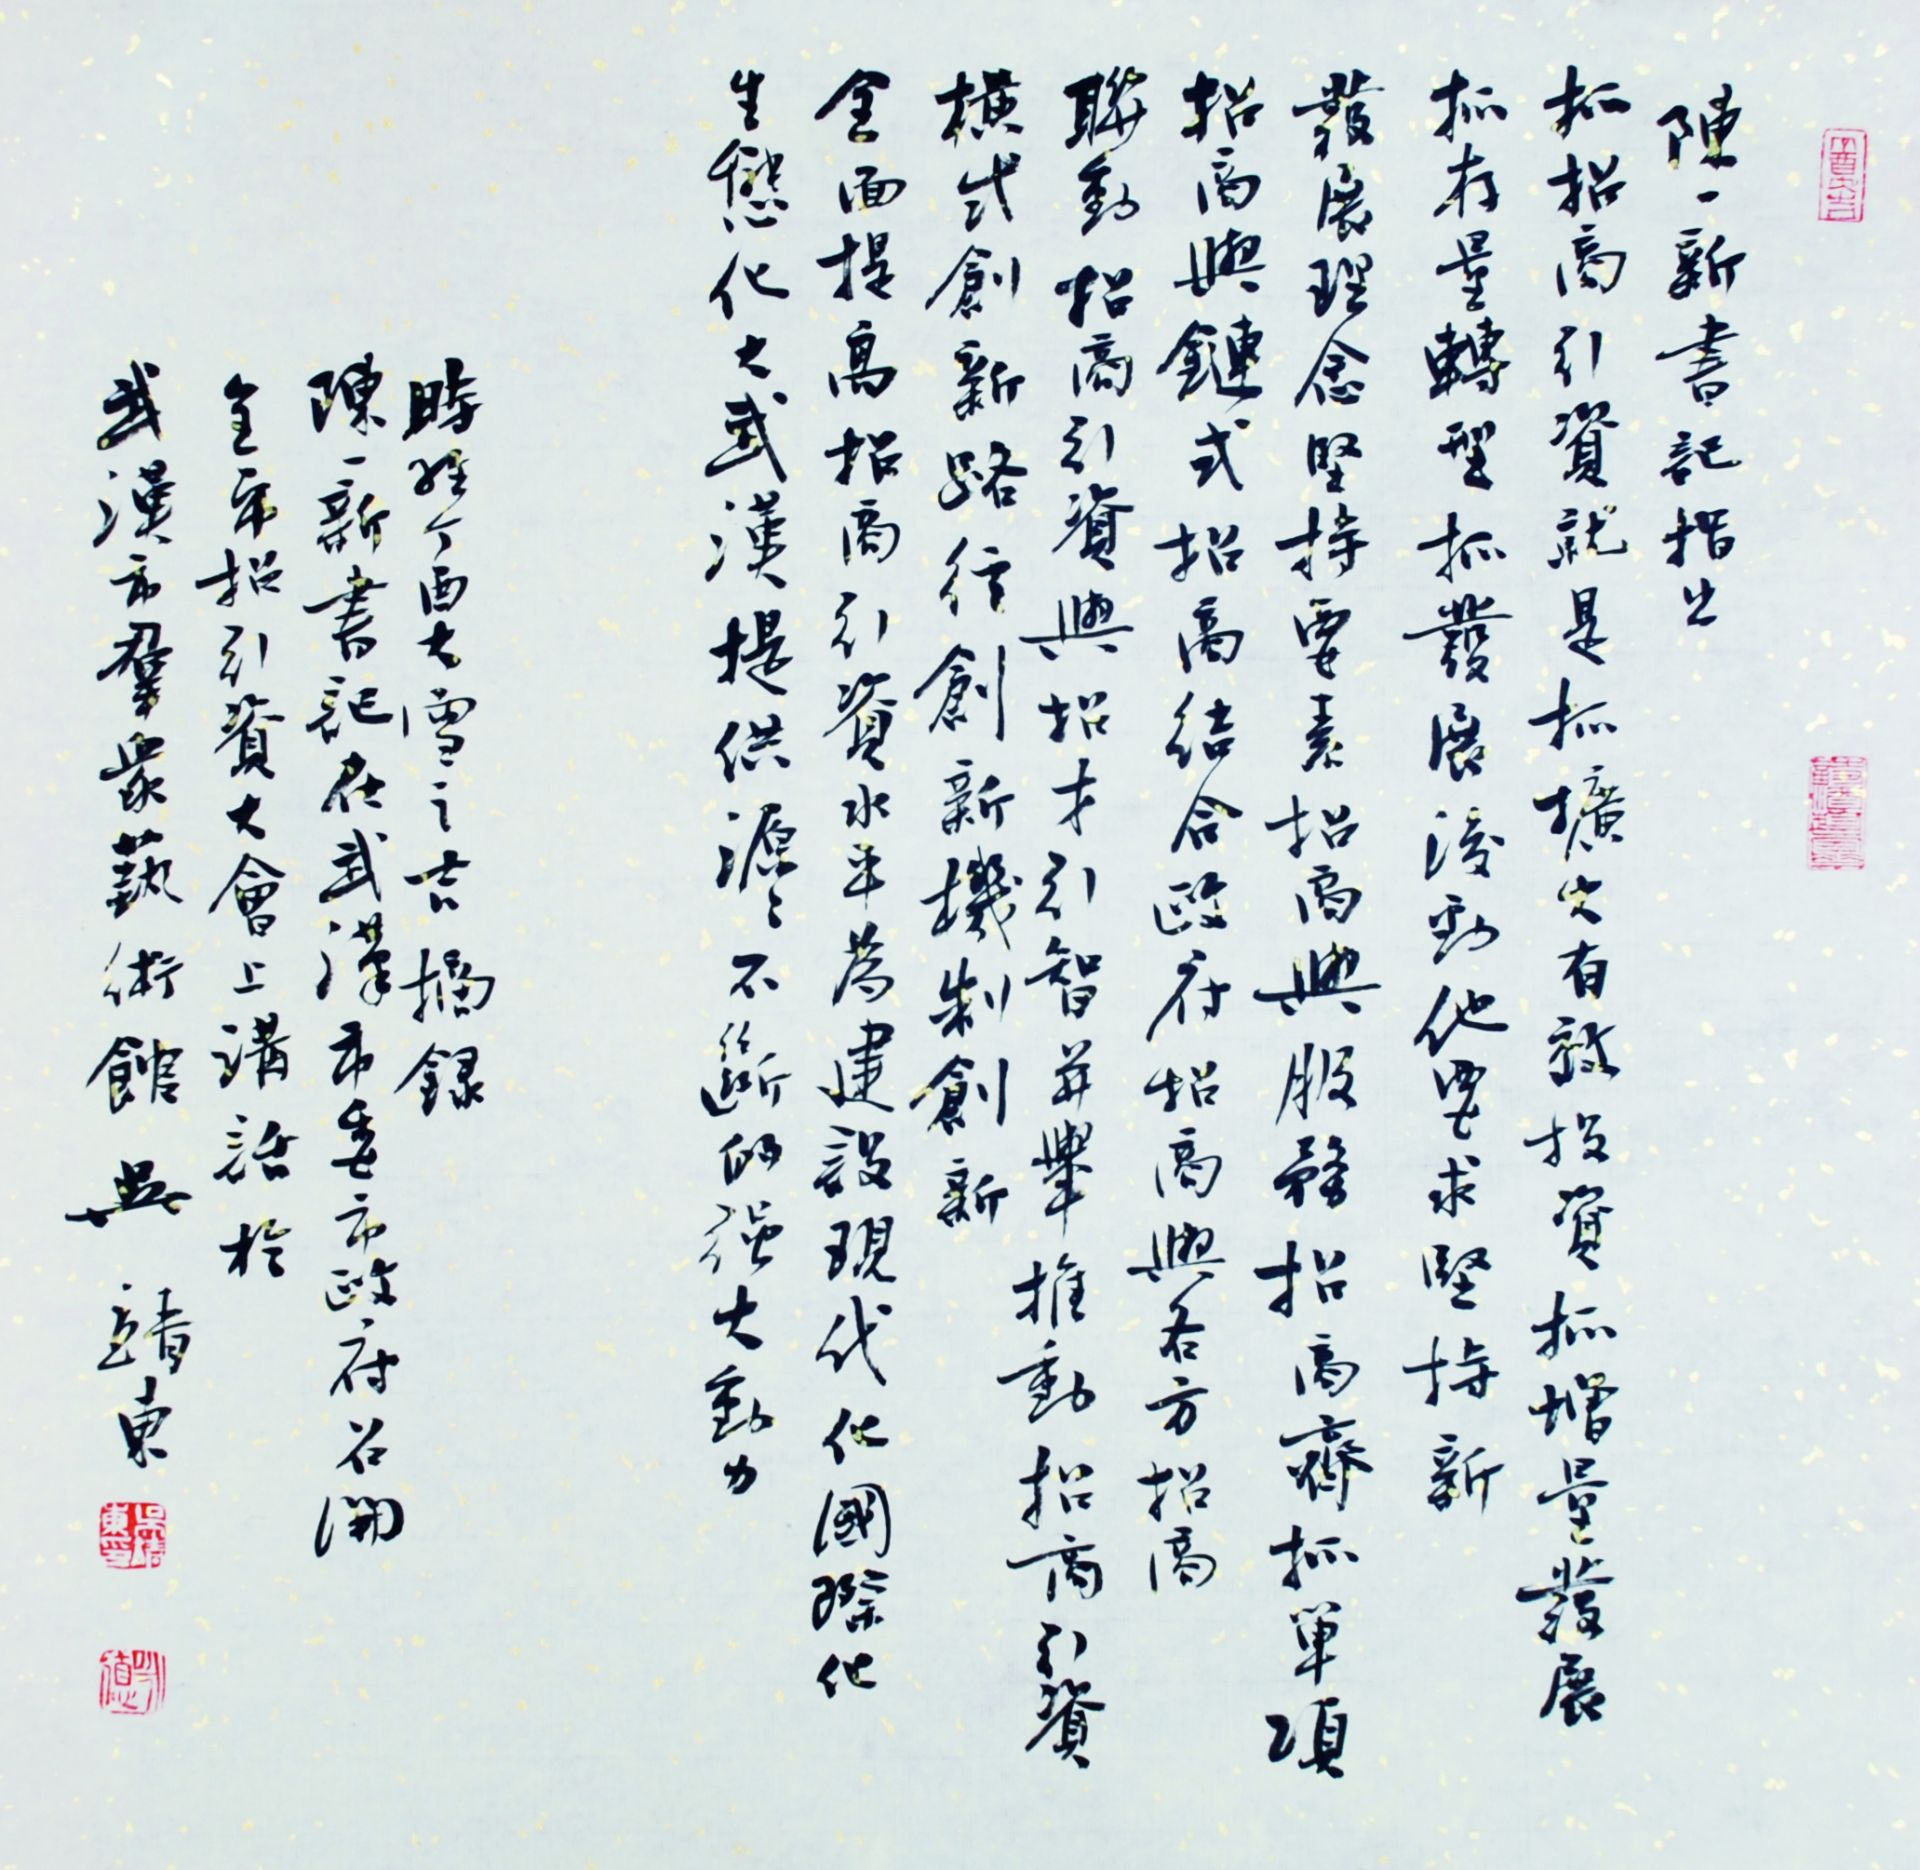 陳一新書記指出
抓招商引資就是抓擴大有效投資抓增量發展
抓存量轉型抓發展後勁他要求堅持新
發展理念堅持要素招商與服務招商齊抓單項
招商與鏈式招商結合政府招商與各方招商
聯動招商引資與招才引智並舉推動招商引資
模式創新路徑創新機制創新
全面提高招商引資水平為建設現代化國際化
生態化大武漢提供源源不斷的强大動力
時維丁酉大雪之吉摘録
陳一新書記在武漢市委市政府召開
全市招引資大會上講話於
武漢市羣衆藝術館 吳靖東